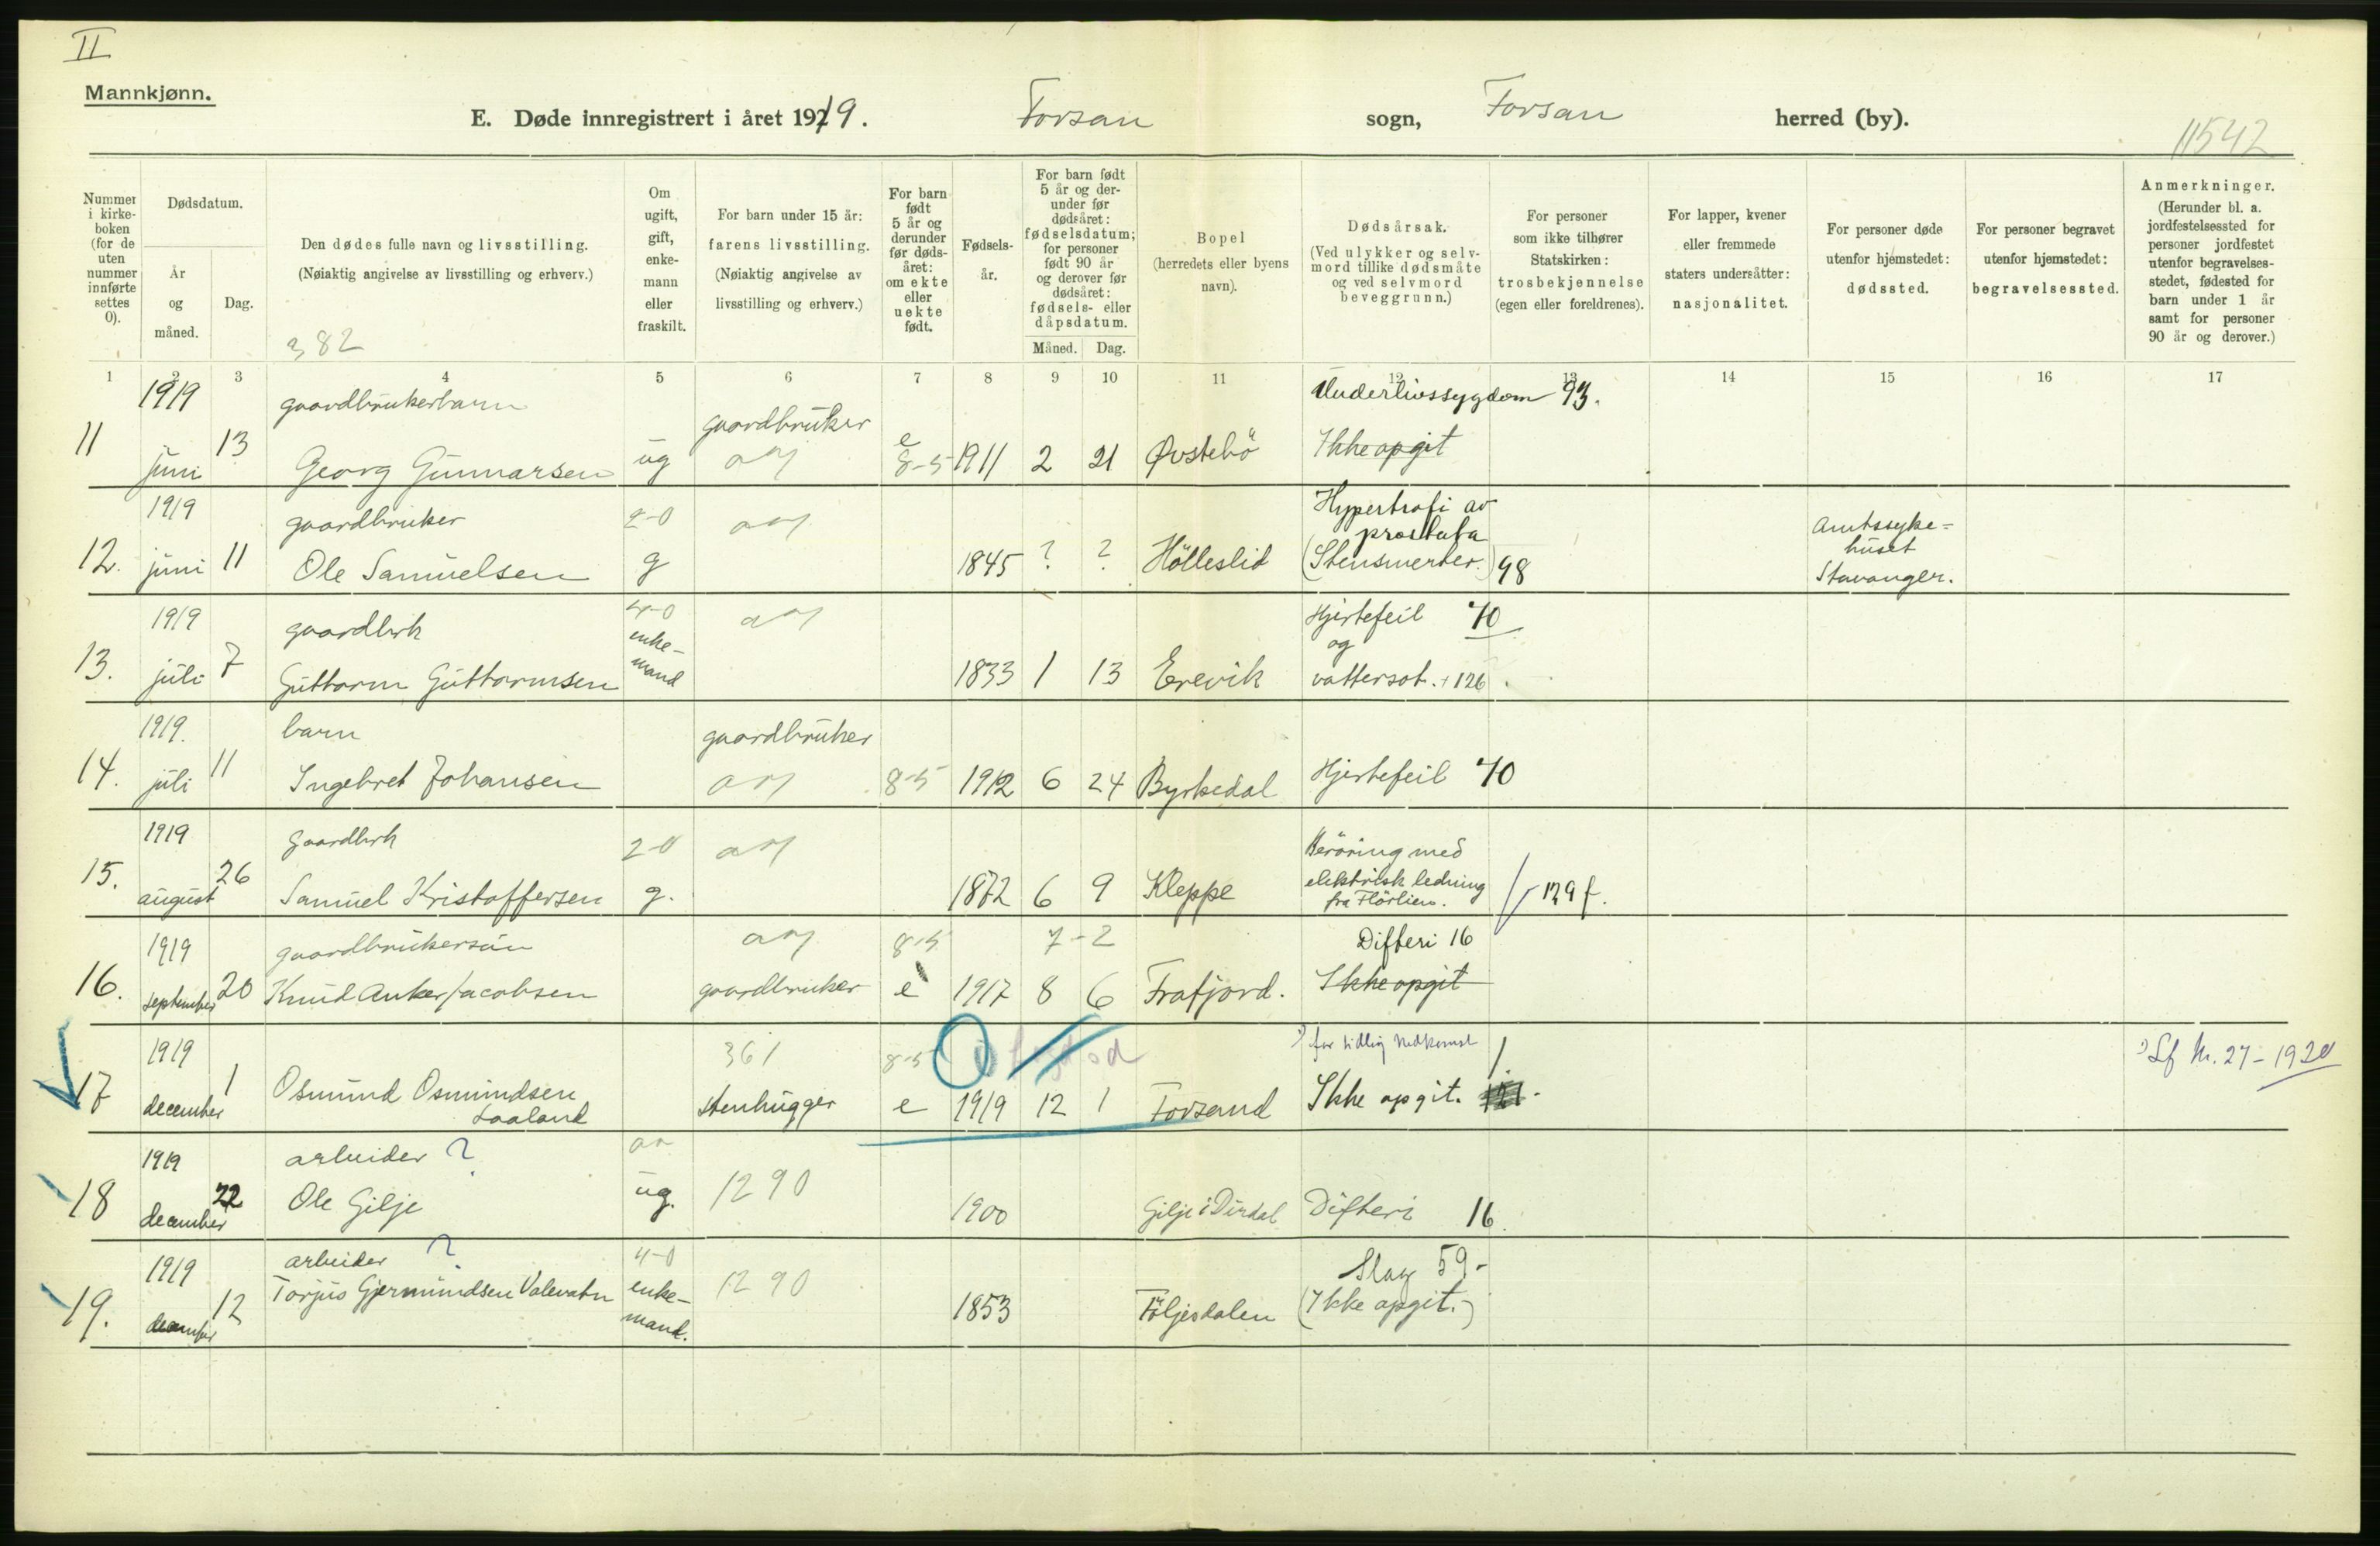 II
Mannkjønn.
E. Døde innregistrert i året 1919. Forsan sogn, Forsan herred (by).
11542
Nummer i kirkeboken (for de uten nummer innførte settes 0).
Dødsdatum.
År og måned.
Dag.
Den dødes fulle navn og livsstilling.
(Nøiaktig angivelse av livsstilling og erhverv.)
382
Om ugift, gift, enkemann eller fraskilt.
For barn under 15 år: farens livsstilling.
(Nøiaktig angivelse av livsstilling og erhverv.)
For barn født 5 år og derunder før dødsåret: om ekte eller uekte født.
Fødselsår.
For barn født 5 år og derunder før dødsåret: fødselsdatum; for personer født 90 år og derover før dødsåret: fødsels- eller dåpsdatum.
Måned. Dag.
Bopel
(herredets eller byens navn).
Dødsårsak.
(Ved ulykker og selvmord tillike dødsmåte og ved selvmord beveggrunn.)
For personer som ikke tilhører Statskirken: trosbekjennelse (egen eller foreldrenes).
For lapper, kvener eller fremmede staters undersåtter: nasjonalitet.
For personer døde utenfor hjemstedet: dødssted.
For personer begravet utenfor hjemstedet: begravelsessted.
Anmerkninger.
(Herunder bl. a. jordfestelsessted for personer jordfestet utenfor begravelsesstedet, fødested for barn under 1 år samt for personer 90 år og derover.)
1 2 3 4 5 6 7 8 9 10 11 12 13 14 15 16 17
1919 gaardbrukerbarn gaardbruker Underlivssygdom 93.
11 juni 13 Georg Gunnarsen ug e 8-5 1911 2 21 Øvstebö Ikke opgit
1919 gaardbruker 2-0 Hypertrofi av prostata
12. juni 11 Ole Samuelsen g 1845 ? ? Hölleslid (Stensmerter.) 98 Amtssykehuset Stavanger.
1919 gaardbrk 4-0 Hjertefeil 70
13. juli 7 Guttorm Guttormsen enkemand 1833 1 13 Erevik og vattersot. + 126
1919. barn gaardbruker
14. juli 11 Ingebret Johansen 8-5 1912 6 24 Byrkedal Hjertefeil 70
1919 Gaardbrk 2-0
15. august 26 Samuel Kristoffersen g. 1872 6 9 Kleppe Beröring med elektrisk ledning fra Flörlien. 129 f.
1919 gaardbrukersön 8-5 7-2 Difteri 16
16. september 20 Knud Anker Jacobsen gaardbruker e 1917 8 6 Frafjord. Ikke opgit
1919 361 8-5 for tidlig nedkomst 1 Lf Nr. 27-1920
17 december 1 Osmund Osmundsen Laaland stenhugger e 1919 12 1 Forsand Ikke opgit.
1919 arbeider ?
18 december 22 Ole Gilje ug. 1290 1900 Gilje i Dirdal Difteri 16
1919 arbeider ? 4-0 Slag 59-
19. december 12 Torjus Gjermundsen Valevatn enkemand. 1290 1853 Följesdalen (Ikke opgit.)